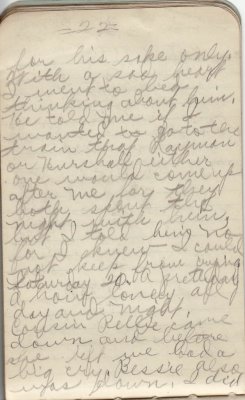 22
for his sake only.
With a sad heart
I went to bed
thinking about him.
He told me if I
wanted to go to the
train that Rayman
or Hurshall either
one would come up
after me for they
both spent the
night with him,
but I told him No
for I knew I could
not keep from crying
Saturday 20th yesterday
about lonely all
day and night.
Cousin Belle came
down and before
she left we had a
big cry. Bessie also
was down. I did